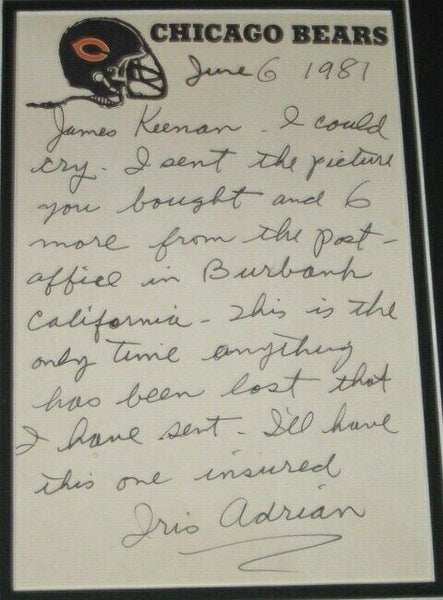 CHICAGO BEARS
June 6 1981
James Keenan - I could
cry - I sent the picture
you bought and 6
more from the post-
office in Burbank
California - This is the
only time anything
has been lost that
I have sent - I'll have
this one insured
Iris Adrian